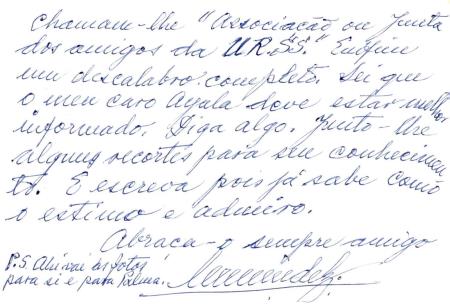 chamam-lhe "Associação ou Junta
dos amigos da U.R.S.S." Enfim
um descalabro completo. Sei que
o meu caro Ayala deve estar melhor
informado. Diga algo. Junto-lhe
alguns recortes para seu conhecimen
to. E escreva pois já sabe como
o estimo e admiro.
Abraca-o sempre amigo
P.S. Ahi vai as fotos
para si e para Palma.